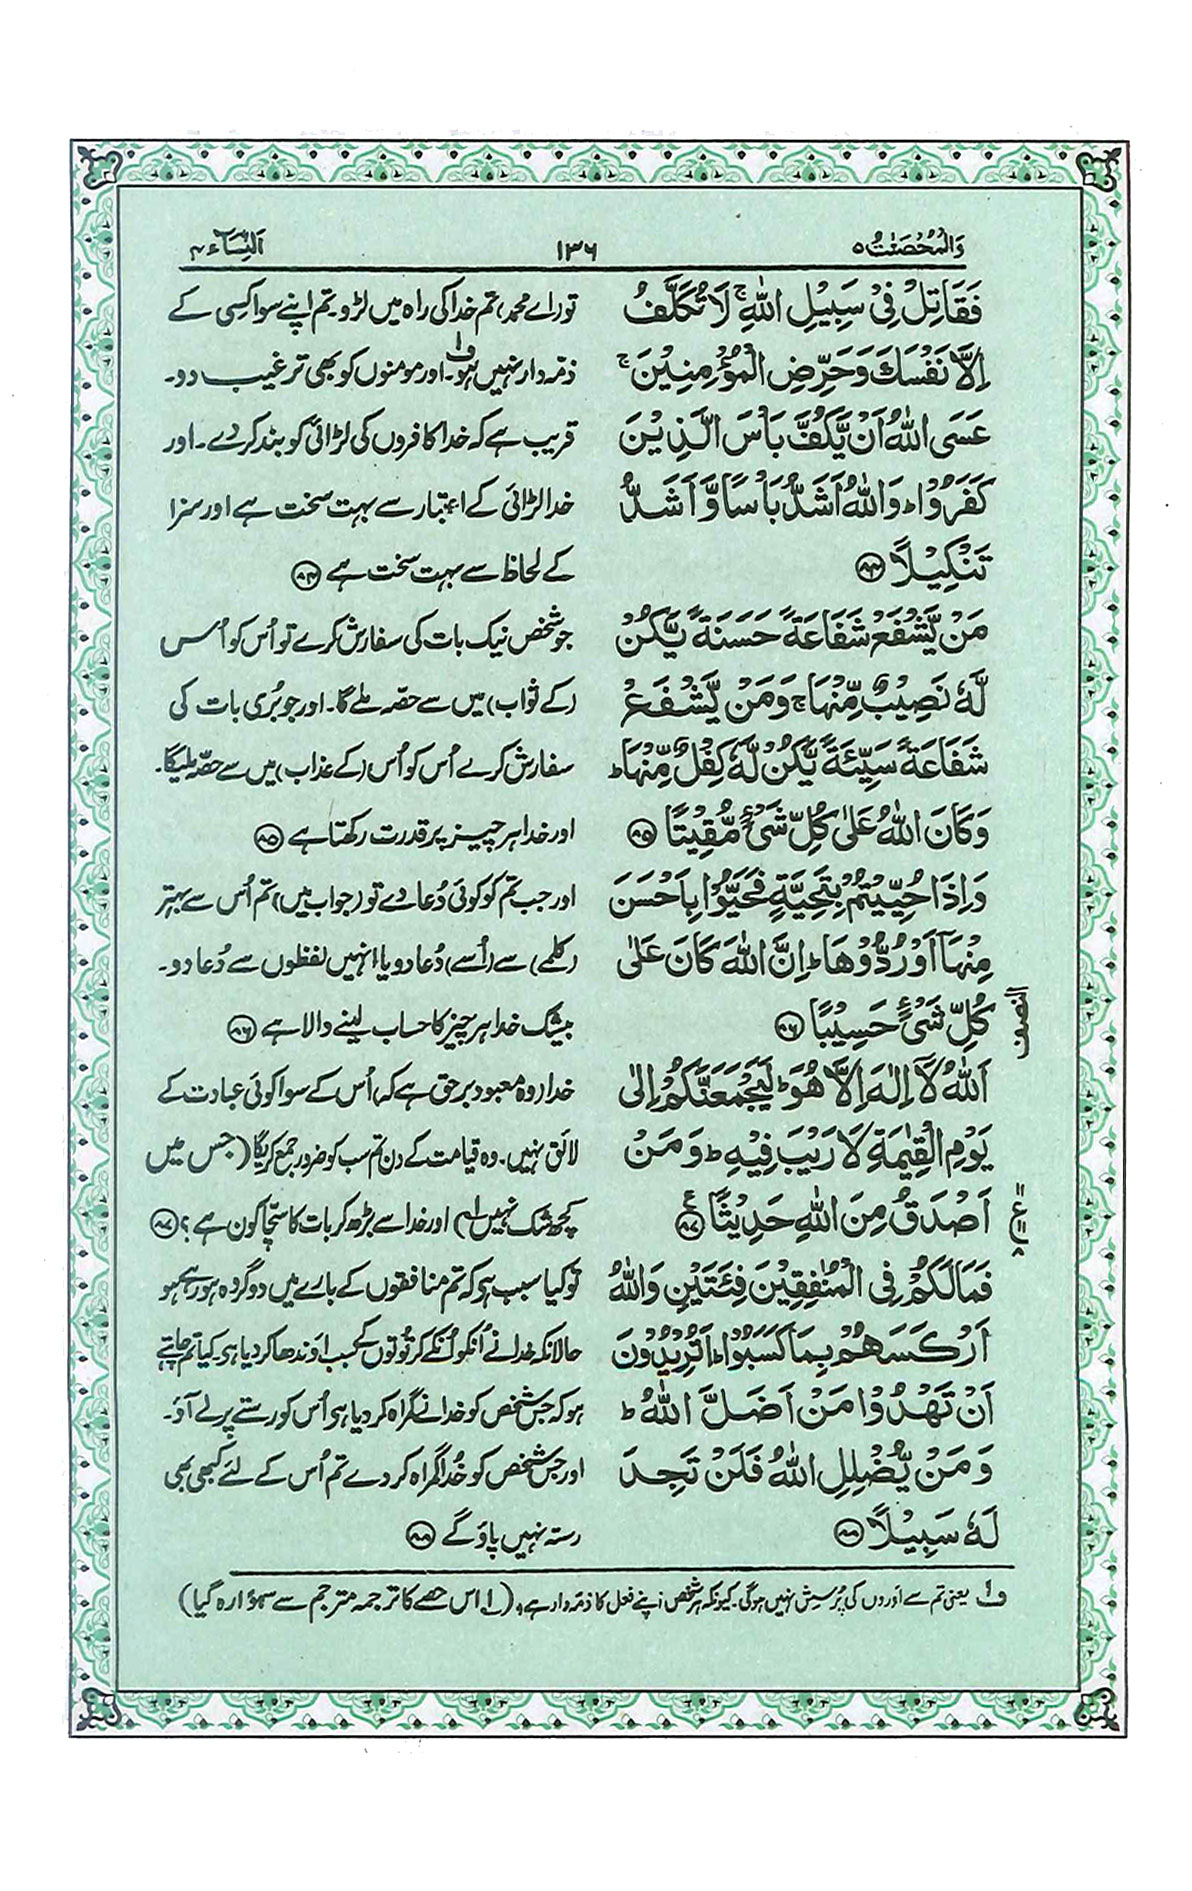 وَالْمُحْصَنٰتُ ۵
۱۳۶
اَلنِّسَآء ۴
فَقَاتِلْ فِیْ سَبِیْلِ اللّٰهِ ۚ لَا تُكَلَّفُ
اِلَّا نَفْسَكَ وَحَرِّضِ الْمُؤْمِنِیْنَ ۚ
عَسَی اللّٰهُ اَنْ یَّكُفَّ بَاْسَ الَّذِیْنَ
كَفَرُوْا ؕ وَاللّٰهُ اَشَدُّ بَاْسًا وَّ اَشَدُّ
تَنْكِیْلًا ۸۴
مَنْ یَّشْفَعْ شَفَاعَةً حَسَنَةً یَّكُنْ
لَّهٗ نَصِیْبٌ مِّنْهَا ۚ وَمَنْ یَّشْفَعْ
شَفَاعَةً سَیِّئَةً یَّكُنْ لَّهٗ كِفْلٌ مِّنْهَا ؕ
وَكَانَ اللّٰهُ عَلٰی كُلِّ شَیْءٍ مُّقِیْتًا ۸۵
وَاِذَا حُیِّیْتُمْ بِتَحِیَّةٍ فَحَیُّوْا بِاَحْسَنَ
مِنْهَاۤ اَوْ رُدُّوْهَا ؕ اِنَّ اللّٰهَ كَانَ عَلٰی
كُلِّ شَیْءٍ حَسِیْبًا ۸۶
اَللّٰهُ لَاۤ اِلٰهَ اِلَّا هُوَ ؕ لَیَجْمَعَنَّكُمْ اِلٰی
یَوْمِ الْقِیٰمَةِ لَا رَیْبَ فِیْهِ ؕ وَ مَنْ
اَصْدَقُ مِنَ اللّٰهِ حَدِیْثًا ۸۷
فَمَا لَكُمْ فِی الْمُنٰفِقِیْنَ فِئَتَیْنِ وَاللّٰهُ
اَرْكَسَهُمْ بِمَا كَسَبُوْا ؕ اَتُرِیْدُوْنَ
اَنْ تَهْدُوْا مَنْ اَضَلَّ اللّٰهُ ؕ
وَ مَنْ یُّضْلِلِ اللّٰهُ فَلَنْ تَجِدَ
لَهٗ سَبِیْلًا ۸۸
النصف
ع ۱۱ ۸
تو (اے محمدؐ) تم خدا کی راہ میں لڑو۔ تم اپنے سوا کسی کے
ذمّہ دار نہیں ہو ف۱۔ اور مومنوں کو بھی ترغیب دو۔
قریب ہے کہ خدا کافروں کی لڑائی کو بند کر دے۔ اور
خدا لڑائی کے اعتبار سے بہت سخت ہے اور سزا
کے لحاظ سے بہت سخت ہے ۸۴
جو شخص نیک بات کی سفارش کرے تو اُس کو اُس
(کے ثواب) میں سے حصّہ ملے گا۔ اور جو بُری بات کی
سفارش کرے اُس کو اُس (کے عذاب) میں سے حصّہ ملیگا۔
اور خدا ہر چیز پر قدرت رکھتا ہے ۸۵
اور جب تم کو کوئی دُعا دے تو (جواب میں) تم اُس سے بہتر
(کلمے) سے (اُسے) دُعا دو یا انہیں لفظوں سے دُعا دو۔
بیشک خدا ہر چیز کا حساب لینے والا ہے ۸۶
خدا (وہ معبود برحق ہے کہ) اُس کے سوا کوئی عبادت کے
لائق نہیں۔ وہ قیامت کے دن تم سب کو ضرور جمع کریگا (جس میں
کچھ شک نہیں ۱؎) اور خدا سے بڑھ کر بات کا سچّا کون ہے؟ ۸۷
تو کیا سبب ہی کہ تم منافقوں کے بارے میں دو گروہ ہو رہے ہو
حالانکہ خدا نے اُنکو اُنکے کرتُوتوں کے سبب اَوندھا کر دیا ہی کیا تم چاہتے
ہو کہ جس شخص کو خدا نے گمراہ کر دیا ہی اُس کو رستے پر لے آؤ۔
اور جس شخص کو خُدا گمراہ کر دے تم اُس کے لئے کبھی بھی
رستہ نہیں پاؤ گے ۸۸
ف۱ یعنی تم سے اَوروں کی پُرسش نہیں ہو گی۔ کیونکہ ہر شخص اپنے فعل کا ذمّہ دار ہے، (۱؎ اس حصے کا ترجمہ مترجم سے سہوًا رہ گیا)